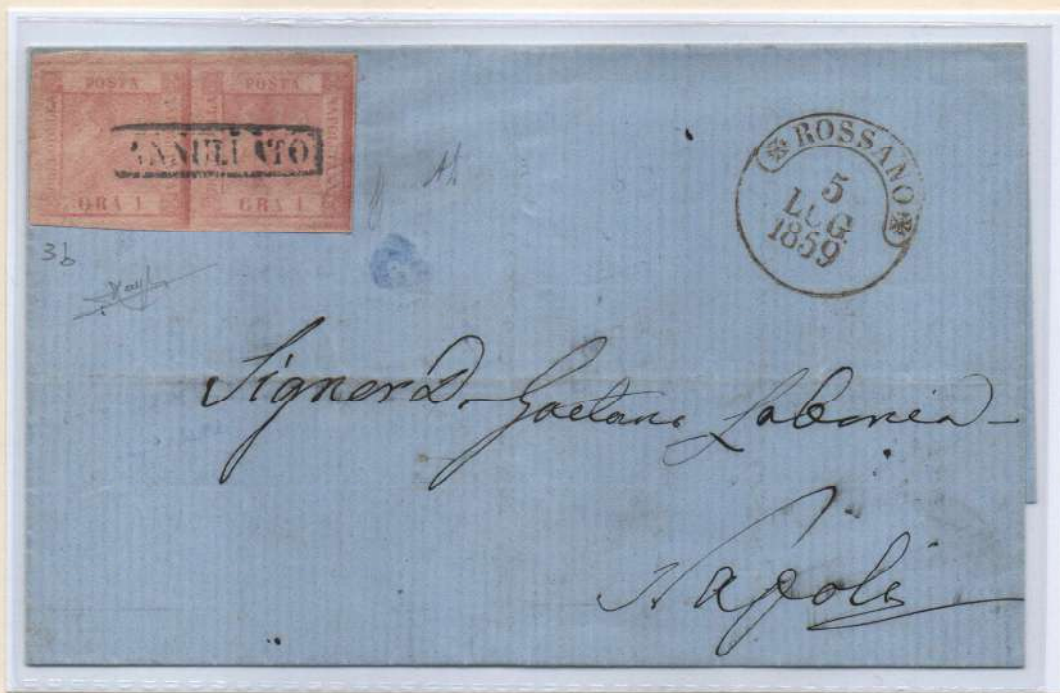 POSTA POSTA
ANNULLATO
GRA 1 GRA 1
3b
❊ ROSSANO ❊
5
LUG
1859
Signor D. Gaetano Labonia
Napoli